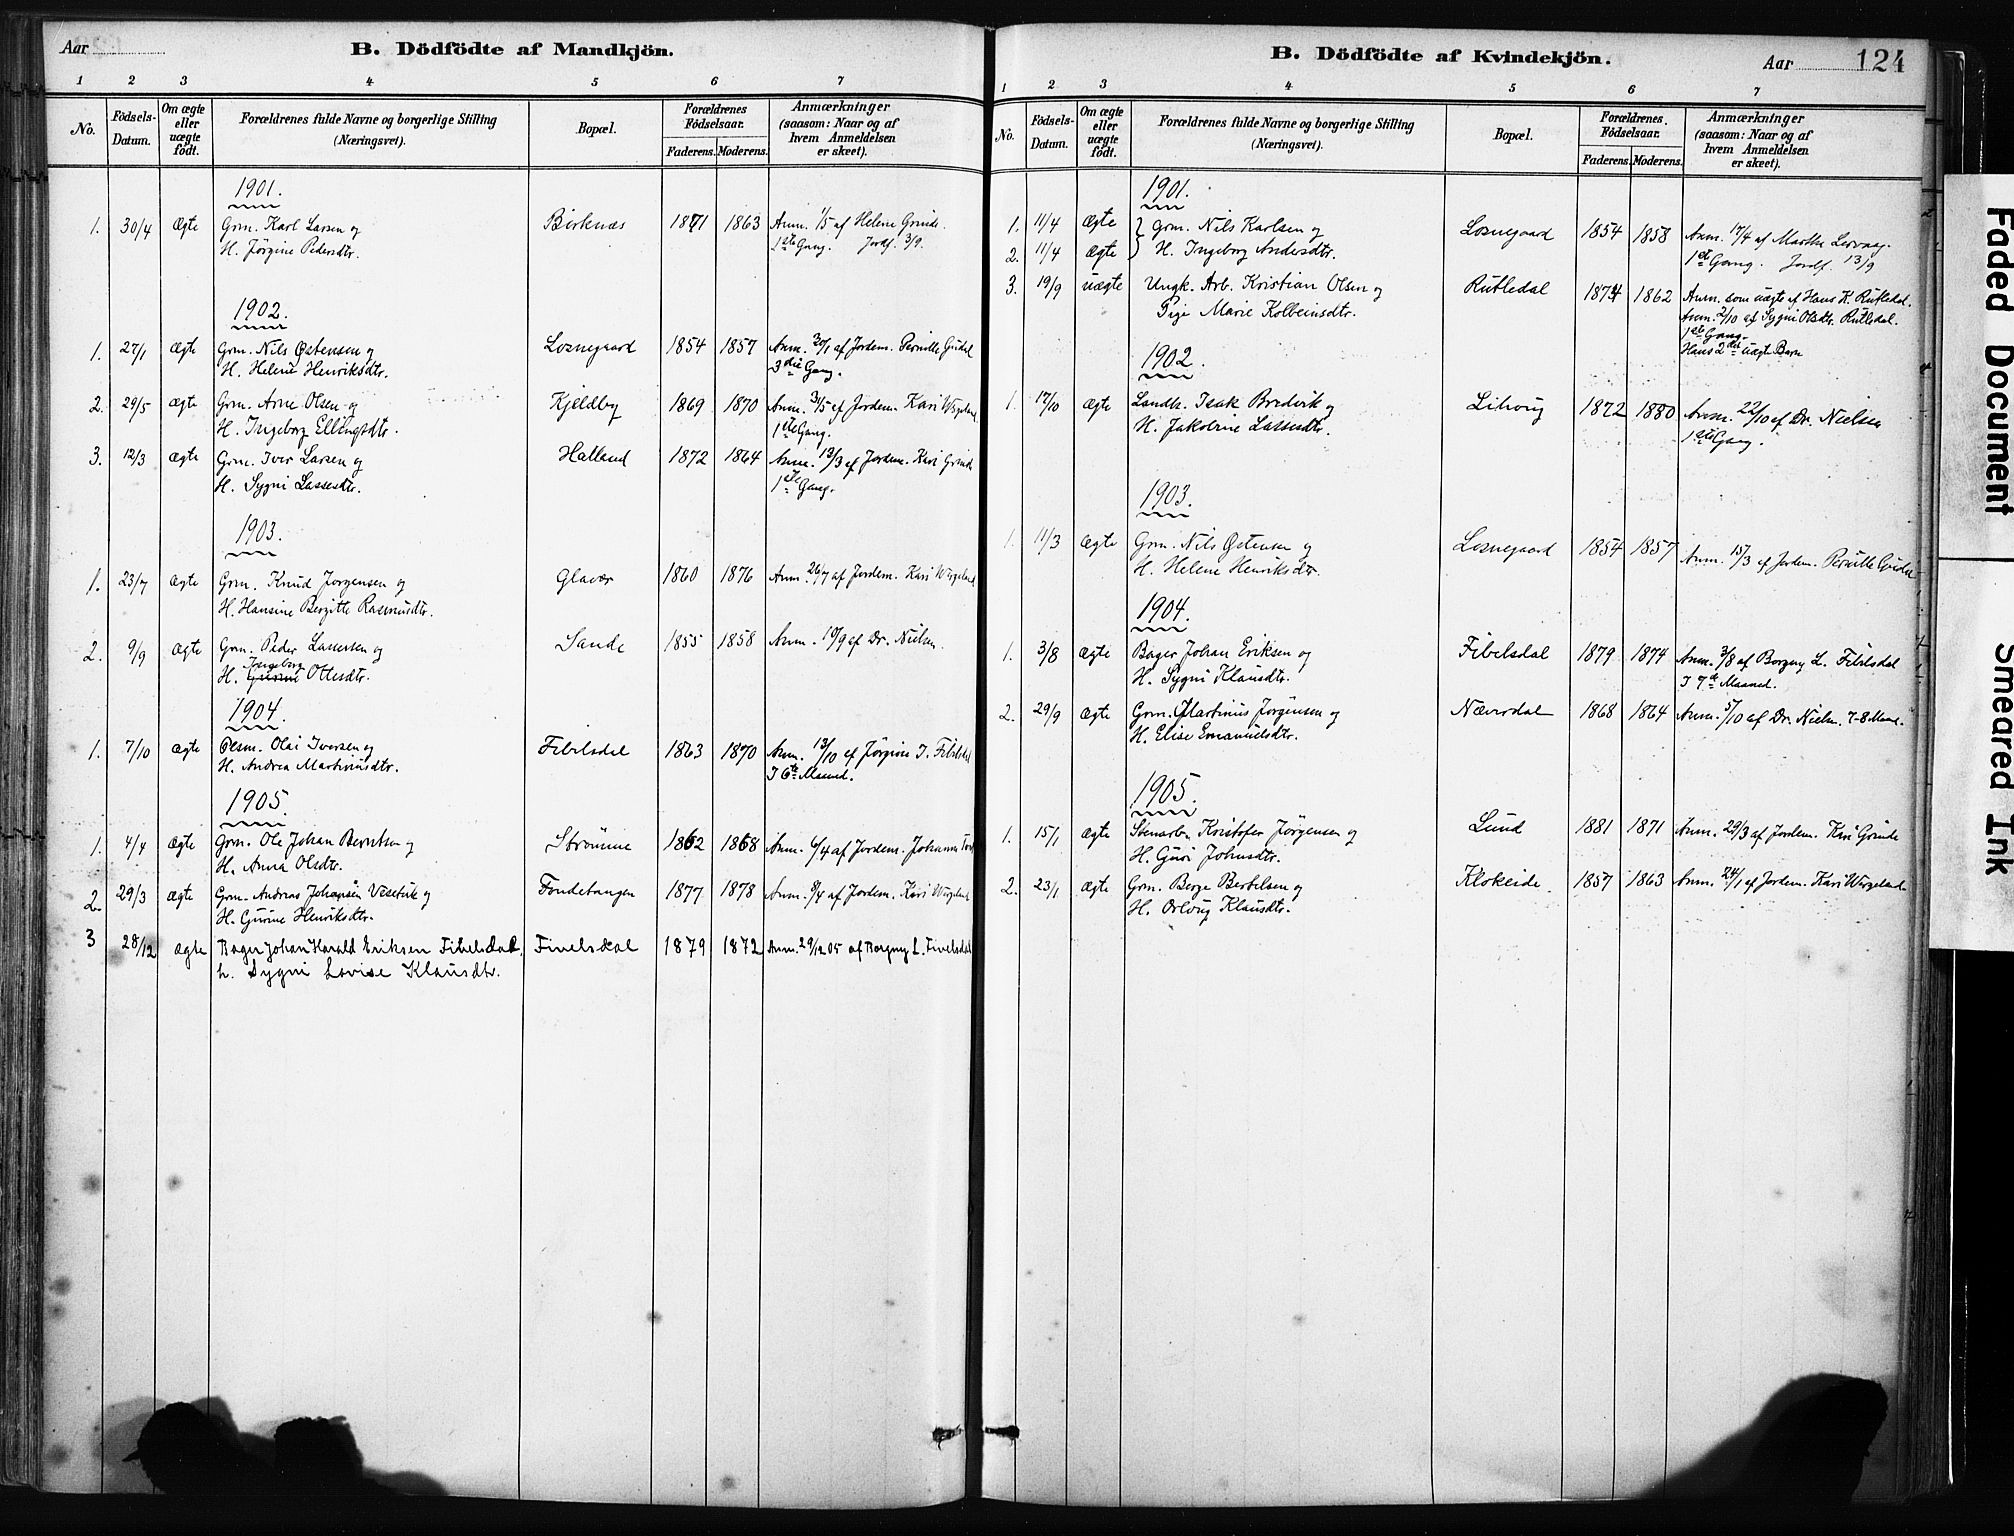 Aar
B. Dödfödte af Mandkjön.
1 2 3 4 5 6 7
No.
Födsels-Datum.
Om ægte eller uægte födt.
Forældrenes fulde Navne og borgerlige Stilling
(Næringsvei).
Bopæl.
Forældrenes Födselsaar.
Faderens. Moderens.
Anmærkninger
(saasom: Naar og af
hvem Anmeldelsen
er skeet).
1901.
1. 30/4 Ægte Grm. Karl Larsen og Birknes 1871 1863 Anm. 1/5 af Helene Grinde.
H. Jørgine Pedersdtr. 1ste Gang. Jordf. 3/9.
1902.
1. 27/1 Ægte Grm. Nils Østensen og Losnegaard 1854 1857 Anm. af Jordem. Pernille
H. Helene Henriksdtr. 3die Gang.
2. 29/5 Ægte Grm. Arne Olsen og Kjeldby 1869 1870 Anm. 3/5 af Jordem. Kari Wergeland
H. Ingeborg 1ste Gang.
3. 12/3 Ægte Grm. Iver Larsen og Halland 1872 1864 Anm. 13/3 af Jordem. Kari Grinde
H. Sygni Lassesdtr. 1ste Gang.
1903.
1. 23/7 Ægte Grm. Knud Jørgensen og Glavær 1860 1876 Anm. 26/7 af Jordem. Kari Wergeland
H. Hansine Bergitte Rasmusdtr.
2. 9/9 Ægte Grm. Peder Lassesen og Sande 1855 1858 Anm. 10/9 af Dr. Nielsen.
Ingeborg
H. Gurine Ottesdtr.
1904.
1. 7/10 Ægte Plsm. Olai Iversen og Fibelsdal 1863 1870 Anm. 13/10 af Jørgine I. Fibelsdal
H. Andrea Martinusdtr. I 6te Maaned.
1905.
1. 4/4 Ægte Grm. Ole Johan Berntsen og Strömme 1862 1868 Anm. 6/4 af Jordem. Johanna
H. Anna Olsdtr.
2. 29/3 Ægte Grm. Andreas Johansen og Fondetangen 1877 1878 Anm. 8/4 af Jordem. Kari Wergeland
H. Gurine Henriksdtr.
3 28/12 Ægte Bager Johan Harald Eriksen Fibelsdal, Fivelsdal 1879 1872 Anm. 29/12 05 af Borgny L. Fivelsdal
h. Sygni Lovise Klausdtr.
B. Dödfödte af Kvindekjön.
Aar 124
1 2 3 4 5 6 7
No.
Födsels-Datum.
Om ægte eller uægte födt.
Forældrenes fulde Navne og borgerlige Stilling
(Næringsvei).
Bopæl.
Forældrenes Födselsaar.
Faderens. Moderens.
Anmærkninger
(saasom: Naar og af
hvem Anmeldelsen
er skeet).
1901.
1. 11/4 Ægte Grm. Nils Karlsen og Losnegaard 1854 1858 Anm. 17/4 af Marthe
2. 11/4 Ægte H. Ingeborg Andersdtr. 1ste Gang. Jordf. 13/9
3. 19/9 uægte Ungk. Arb. Kristian Olsen og Rutledal 1874 1862 Anm. som uægte af Hans K. Rutledal.
Pige Marie Kolbeinsdtr. Anm. 2/10 af Sygni Olsdtr. Rutledal.
1ste Gang.
Hans 2det uægte Barn
1902.
1. 17/10 Ægte Landh. Isak Bredvik og 1872 1880 Anm. 22/10 af Dr. Nielsen
H. Jakobine Lassesdtr. 1ste Gang.
1903.
1. 11/3 Ægte Grm. Nils Østensen og Losnegaard 1854 1857 Anm. 15/3 af Jordem. Pernille
H. Helene Henriksdtr.
1904.
1. 3/8 Ægte Bager Johan Eriksen og Fibelsdal 1879 1874 Anm. 3/8 af Borgny L. Fibelsdal
H. Sygni Klausdtr. I 7de Maaned.
2. 29/9 Ægte Grm. Martinus Jørgensen og Næverdal 1868 1864 Anm. 5/10 af Dr. Nielsen. 7-8 Maan.
H. Elise Emanuelsdtr.
1905.
1. 15/1 Ægte Stenarb. Kristofer Jørgensen og Lund 1881 1871 Anm. 22/3 af Jordem. Kari Grinde
H. Guri Johnsdtr.
2. 23/1 Ægte Grm. Børge Bertelsen og Klokeide. 1857 1863 Anm. 24/1 af Jordem. Kari Wergeland
H. Orloug Klausdtr.
Faded Document
Smeared Ink